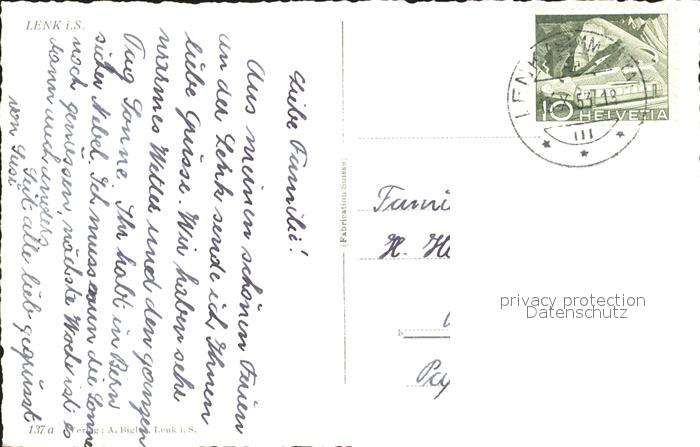 LENK i.S.
Liebe Familie!
Aus meinen schönen Ferien
an der Lenk sende ich Ihnen
liebe Grüsse. Wir haben sehr
warmes Wetter und den ganzen
Tag Sonne. Ihr habt in Bern
sicher Nebel. Ich muss nun die Sonne
noch geniessen, nächste Woche ist es
dann auch anders.
Seit alle lieb gegrüsst
von Susi
137 a Verlag: A. Bigler, Lenk i. S.
(Fabrication Suisse)
10 HELVETIA
LENK
53-18
III
Fami
H. He
privacy protection
Datenschutz